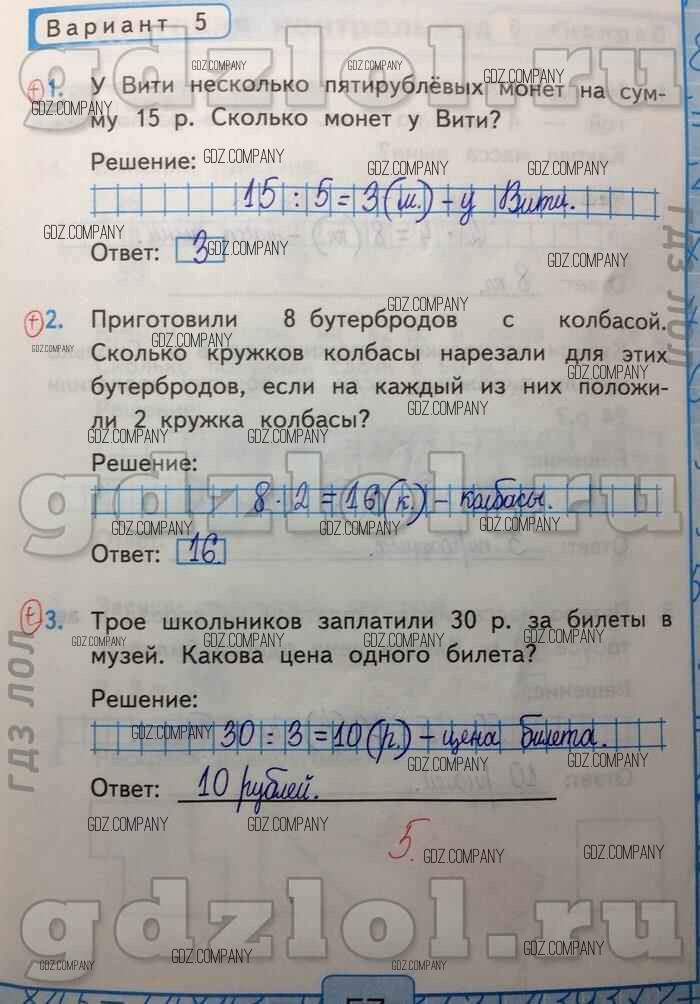 Вариант 5
1. У Вити несколько пятирублёвых монет на сум-
му 15 р. Сколько монет у Вити?
Решение:
15 : 5 = 3 (м.) - у Вити.
Ответ: 3
2. Приготовили 8 бутербродов с колбасой.
Сколько кружков колбасы нарезали для этих
бутербродов, если на каждый из них положи-
ли 2 кружка колбасы?
Решение:
8 · 2 = 16 (к.) - колбасы.
Ответ: 16
3. Трое школьников заплатили 30 р. за билеты в
музей. Какова цена одного билета?
Решение:
30 : 3 = 10 (р.) - цена билета.
Ответ: 10 рублей.
5.
gdzlol.ru
gdzlol.ru
gdzlol.ru
ГДЗ ЛОЛ
ГДЗ ЛОЛ
GDZ.COMPANY
57